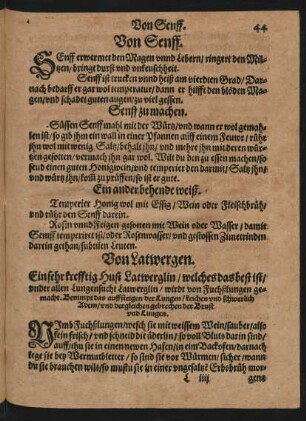 Von Senff. 44
Von Senff.
SEnff erwermet den Magen vnnd Lebern / ringert den Mil-
tzen / bringt durst vnd vnkeuschheit.
Senff ist trucken vnnd heiß am vierdten Grad / Dar-
nach bedarff er gar wol temperatur / dann er hilfft den blöden Ma-
gen / vnd schadet guten augen / zu viel gessen.
Senff zu machen.
Süssen Senff mahl mit der Würtz / vnd wann er wol gemah-
len ist / so gib ihn ein wall in einer Pfannen auff einem Feuwr / rühr
ihn wol mit wenig Saltz / behalt ihn / vnd mehr ihn mit dem wür-
tzen gesotten / vermach ihn gar wol. Wilt du den zu essen machen / so
seud einen guten Honigwein / vnd temperier den darmit / Saltz ihn /
vnd würtz ihn / kom zu prüffen / so ist er gut.
Ein ander behende weiß.
Temperier Honig wol mit Essig / Wein oder Fleischbrüh /
vnd rühr den Senff darein.
Rosin vnnd Feigen gesotten mit Wein oder Wasser / damit
Senff temperiret ist / oder Rosenwasser / vnd gestossen Zimetrinden
darein gethan / subtilen Leuten.
Von Latwergen.
Ein sehr krefftig Hust Latwerglin / welches das best ist /
vnder allen Lungensucht Latwerglin / wirdt von Fuchslungen ge-
macht. Benimpt das auffsteigen der Lungen / keichen vnd schwerlich
Adem / vnd dergleichen gebrechen der Brust
vnd Lungen.
NImb Fuchslungen / wesch sie mit weissem Wein / sauber / also
sein frisch / vnd schneid die äderlin / so voll Bluts darin sind /
auff / thu sie in einen newen Hafen / in ein Backofen / darnach
lege sie bey Wermutbletter / so sind sie vor Würmen / sicher / wann
du sie brauchen wilt / so mustu sie in einer vngesaltz Erbsbrüh mor-
L iiij gens